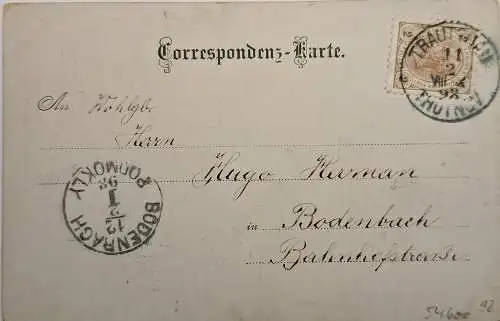 Correspondenz-Karte.
TRAUTENAU
11
2
98
TRUTNOV
2
2
An Wohlgb.
Herrn
Hugo Herman
in Bodenbach
Bahnhofstraße
BODENBACH
12
2
98
I
PODMOKLY
54600